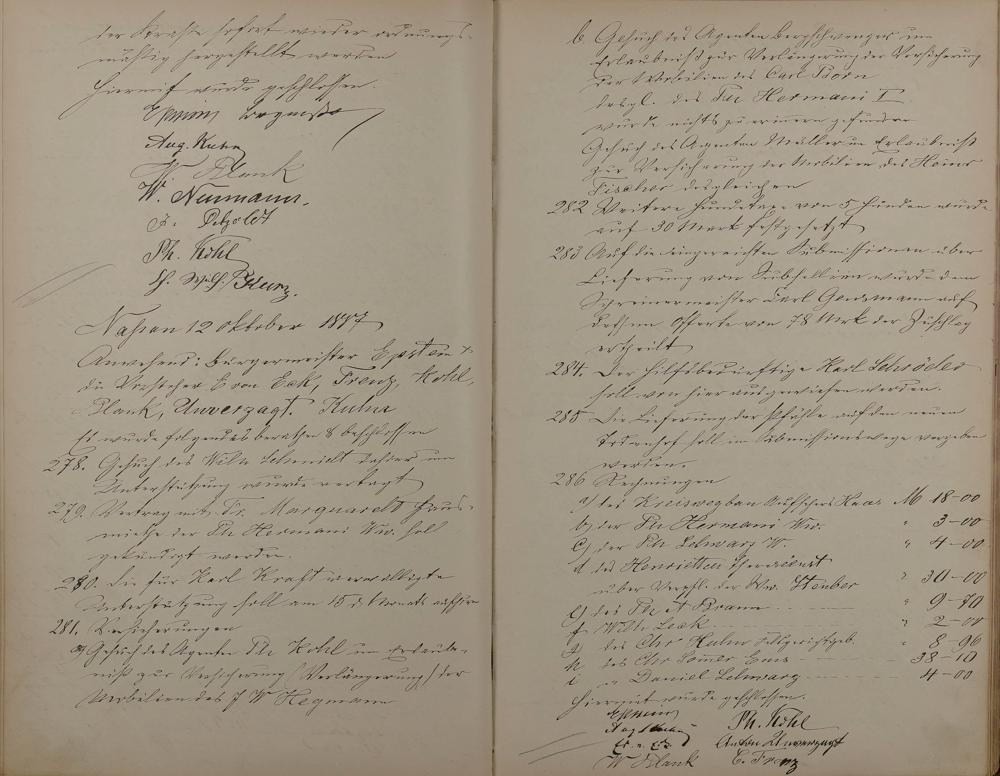 der Straße sofort wieder ordnungs-
mäßig hergestellt werden
Hiermit wurde geschlossen.
Aug. Kuhn
W. Blank
W. Neumann.
Petzoldt
Ph. Kohl
Nassau 12 Oktober 1877
Anwesend: Bürgermeister Epstein &
die Vorsteher E von Eck, Frenz, Kohl,
Blank, Unverzagt. Kuhn
Es wurde folgendes berathen & beschlossen
278. Gesuch des Wilh Schmidt dahier um
Unterstützung wurde vertagt
279. Vertrag mit Fr. Marquardt Haus-
miethe der Ph Hermani Ww. soll
gekündigt werden.
280. Die für Karl Kraft verwilligte
Unterstützung soll am 15 d. Monats aufhören
281. Versicherungen
a) Gesuch des Agenten Ph Kohl um Erlaub-
niß zur Versicherung (Verlängerung) der
Mobilien des J W Hegmann
b. Gesuch des Agenten um
Erlaubniß zur Verlängerung der Versicherung
der Mobilien des Carl Born
desgl. des Ph Hermani I
wurde nichts zu erinnern gefunden
Gesuch des Agenten Müller um Erlaubniß
zur Versicherung der Mobilien des
Fischer desgleichen
282 Weitere Hundetaxe von 5 Hunden wurde
auf 30 Mark festgesetzt
283 Auf die eingereichten Submissionen über
Lieferung von Subsellien wurde dem
Schreinermeister Carl auf
dessen Offerte von 78 Mrk der Zuschlag
ertheilt
284. Der hilfsbedürftige Karl Schröder
soll von hier ausgewiesen werden.
285 Die Lieferung der Pfähle auf den neuen
Todtenhof soll im Submissionswege vergeben
werden.
286 Rechnungen
a) des Kreiswegbau Aufsehers Haas M 18-00
b) der Ph Hermani Ww. " 3-00
c) der Ph Schwarz W. " 4-00
d des Henrietten
über Verpfl. der Ww. Steuber " 30-00
e) des Ph A Braun " 9-70
f Wilh Leck " 2-00
g des Chr Kuhn " 8 96
h des Chr Sommer Ems 38-10
i " Daniel Schwarz 4-00
Hiermit wurde geschlossen.
Epstein
Aug Kuhn
E. v. Eck
W Blank
Ph. Kohl
Anton Unverzagt
C. Frenz